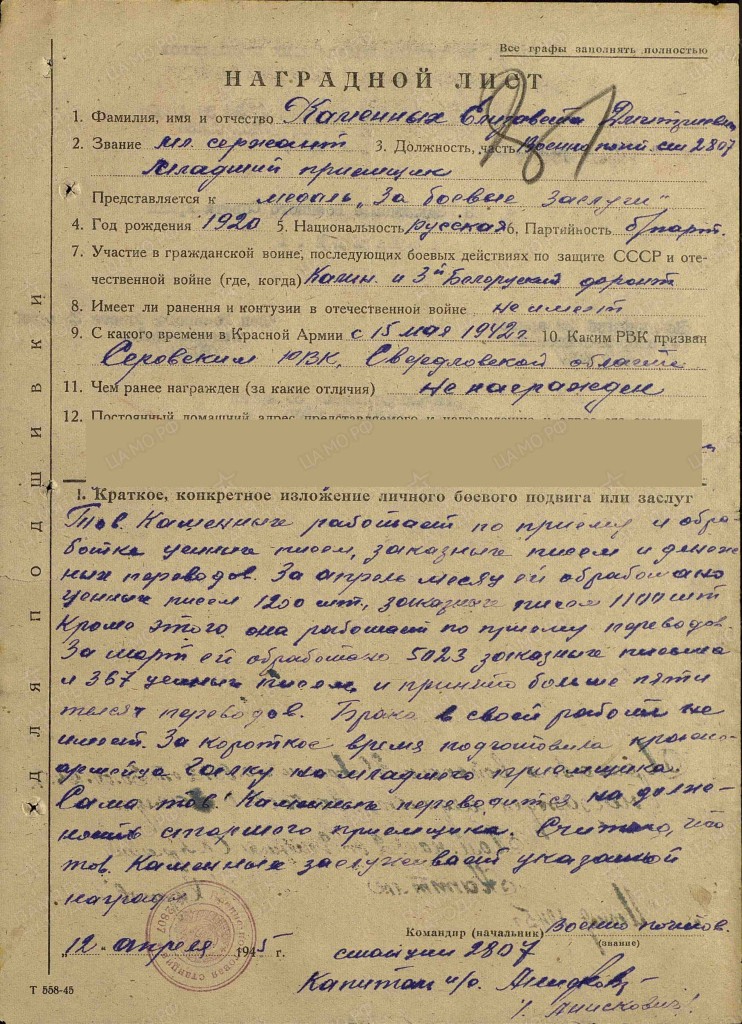 Все графы заполнять полностью
НАГРАДНОЙ ЛИСТ
1. Фамилия, имя и отчество Каменных Елизавета Дмитриевн
2. Звание мл. сержант 3. Должность, часть Военно почт. ст 2807
младший приемщик
Представляется к медаль „За боевые заслуги"
4. Год рождения 1920 5. Национальность русская 6. Партийность б/парт.
7. Участие в гражданской войне, последующих боевых действиях по защите СССР и оте-
чественной войне (где, когда) Калин. и 3й Белорусский фронт
8. Имеет ли ранения и контузии в отечественной войне не имеет
9. С какого времени в Красной Армии с 15 мая 1942 г. 10. Каким РВК призван
Серовским РВК, Свердловской области
11. Чем ранее награжден (за какие отличия) не награжден
12. Постоянный домашний адрес представляемого к награждению и
I. Краткое, конкретное изложение личного боевого подвига или заслуг
Тов. Каменных работает по приему и обра-
ботке ценных писем, заказных писем и денеж
ных переводов. За апрель месяц ей обработано
ценных писем 1200 шт., заказных писем 1100 шт
Кроме этого она работает по приему переводов.
За март ей обработано 5023 заказных письма
и 367 ценных писем, и принято больше пяти
тысяч переводов. Брака в своей работе не
имеет. За короткое время подготовила красно-
армейца на младшего приемщика.
Сама тов. Каменных переводится на долж-
ность старшего приемщика. Считаю, что
тов. Каменных заслуживает указанной
награды
Командир (начальник) Военно почтов.
(звание)
„12" апреля 1945 г.
станции 2807
Капитан и/с
ДЛЯ ПОДШИВКИ
Т 558-45
ЦАМО РФ